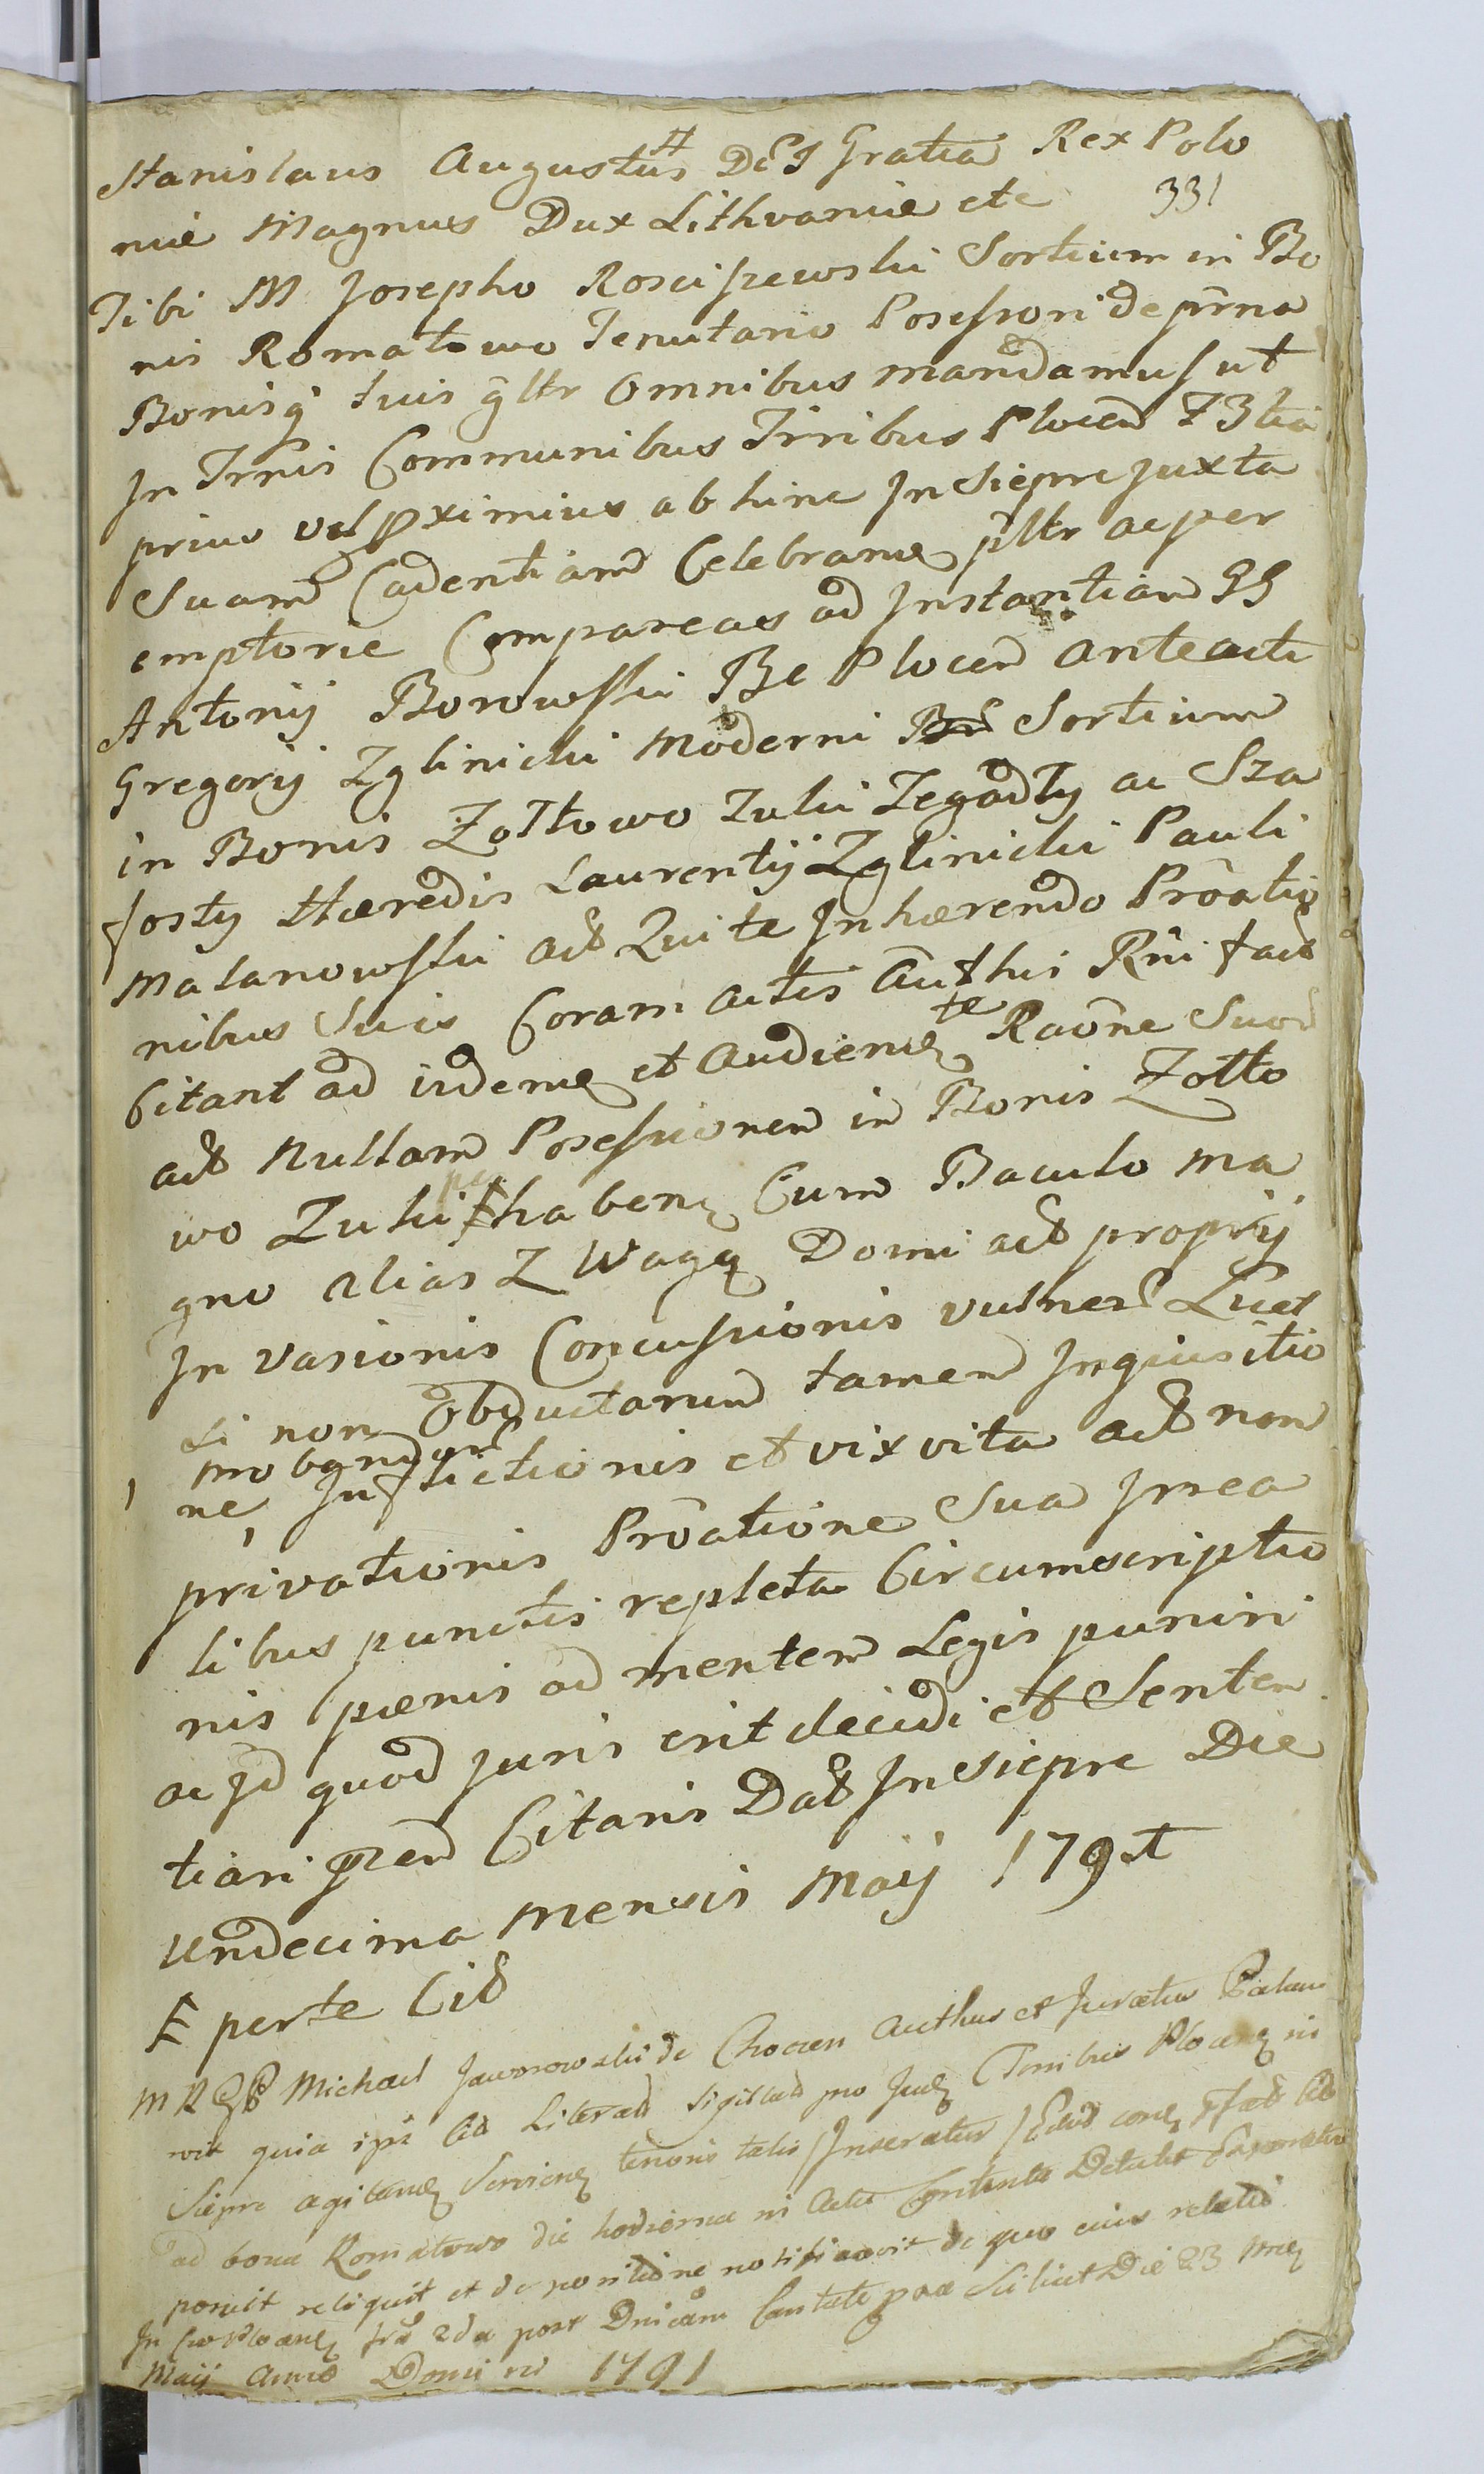 Stanislaus Augustus II DEI Gratia Rex Polo
nie Magnus Dux Lithvaniæ etc
331
Tibi M Josepho Rosciszewski Sortium in Bo
nis Romatowo Tenutario Posessori de prna
Bonisq tuis gltr Omnibus mandamus ut
In Trnis Communibus Trribus Plocen F 3tia
primo vel pximius ab hinc In Sieprc juxta
Suam Cadentiam Celebran pltr ac per
emptorie Compareas ad Instantiam GG
Antonij Borowski Be Plocen anteacti
Gregorij Zglinicki Moderni Sortium
in Bonis Zołtowo Zuki Zegadły ac Sza
fosty Hæredis Laurentij Zglinicki Pauli
Malanowski act Qui te Inhærendo Proatio
nibus Suis Coram actis Authcis Rni fact
Citant ad iidem et audien te Raone Suor
act Nullam Posessionem in Bonis Zołto
wo Zuki haben Cum Baculo ma
gno alias Z Wagą Domi act proprij
In vasionis Concussionis vulner Licet
si non Obductarum tamen Inquisitio
ne probandar Inflictionis et vix vita act non
privationis Proatione Sua Irrea
libus punctis repleta Circumscriptio
nis pænis ad mentem Legis puniri
ac Id quod juris erit decidi et Senten
tiari pen Citaris Dat In Sieprc Die
Undecima Mensis Maij 1791
E parte Cit
Michael Jaworowski de Chocen Authus et Juratus Palam
vit quia ipse Cit Literat Sigillat pro Jud Trribus Plocen in
Sieprc agitan Servien tenoris talis Inseratur
ad bona Romatowo die hodierna in Actu Contenta Detulit
posuit reliquit et de positione notificavit de quo eius relatio
In Plocen fria 2da post Dnicam Cantate pae Scilicet Die 23 Men
Maij Anno Domini 1791